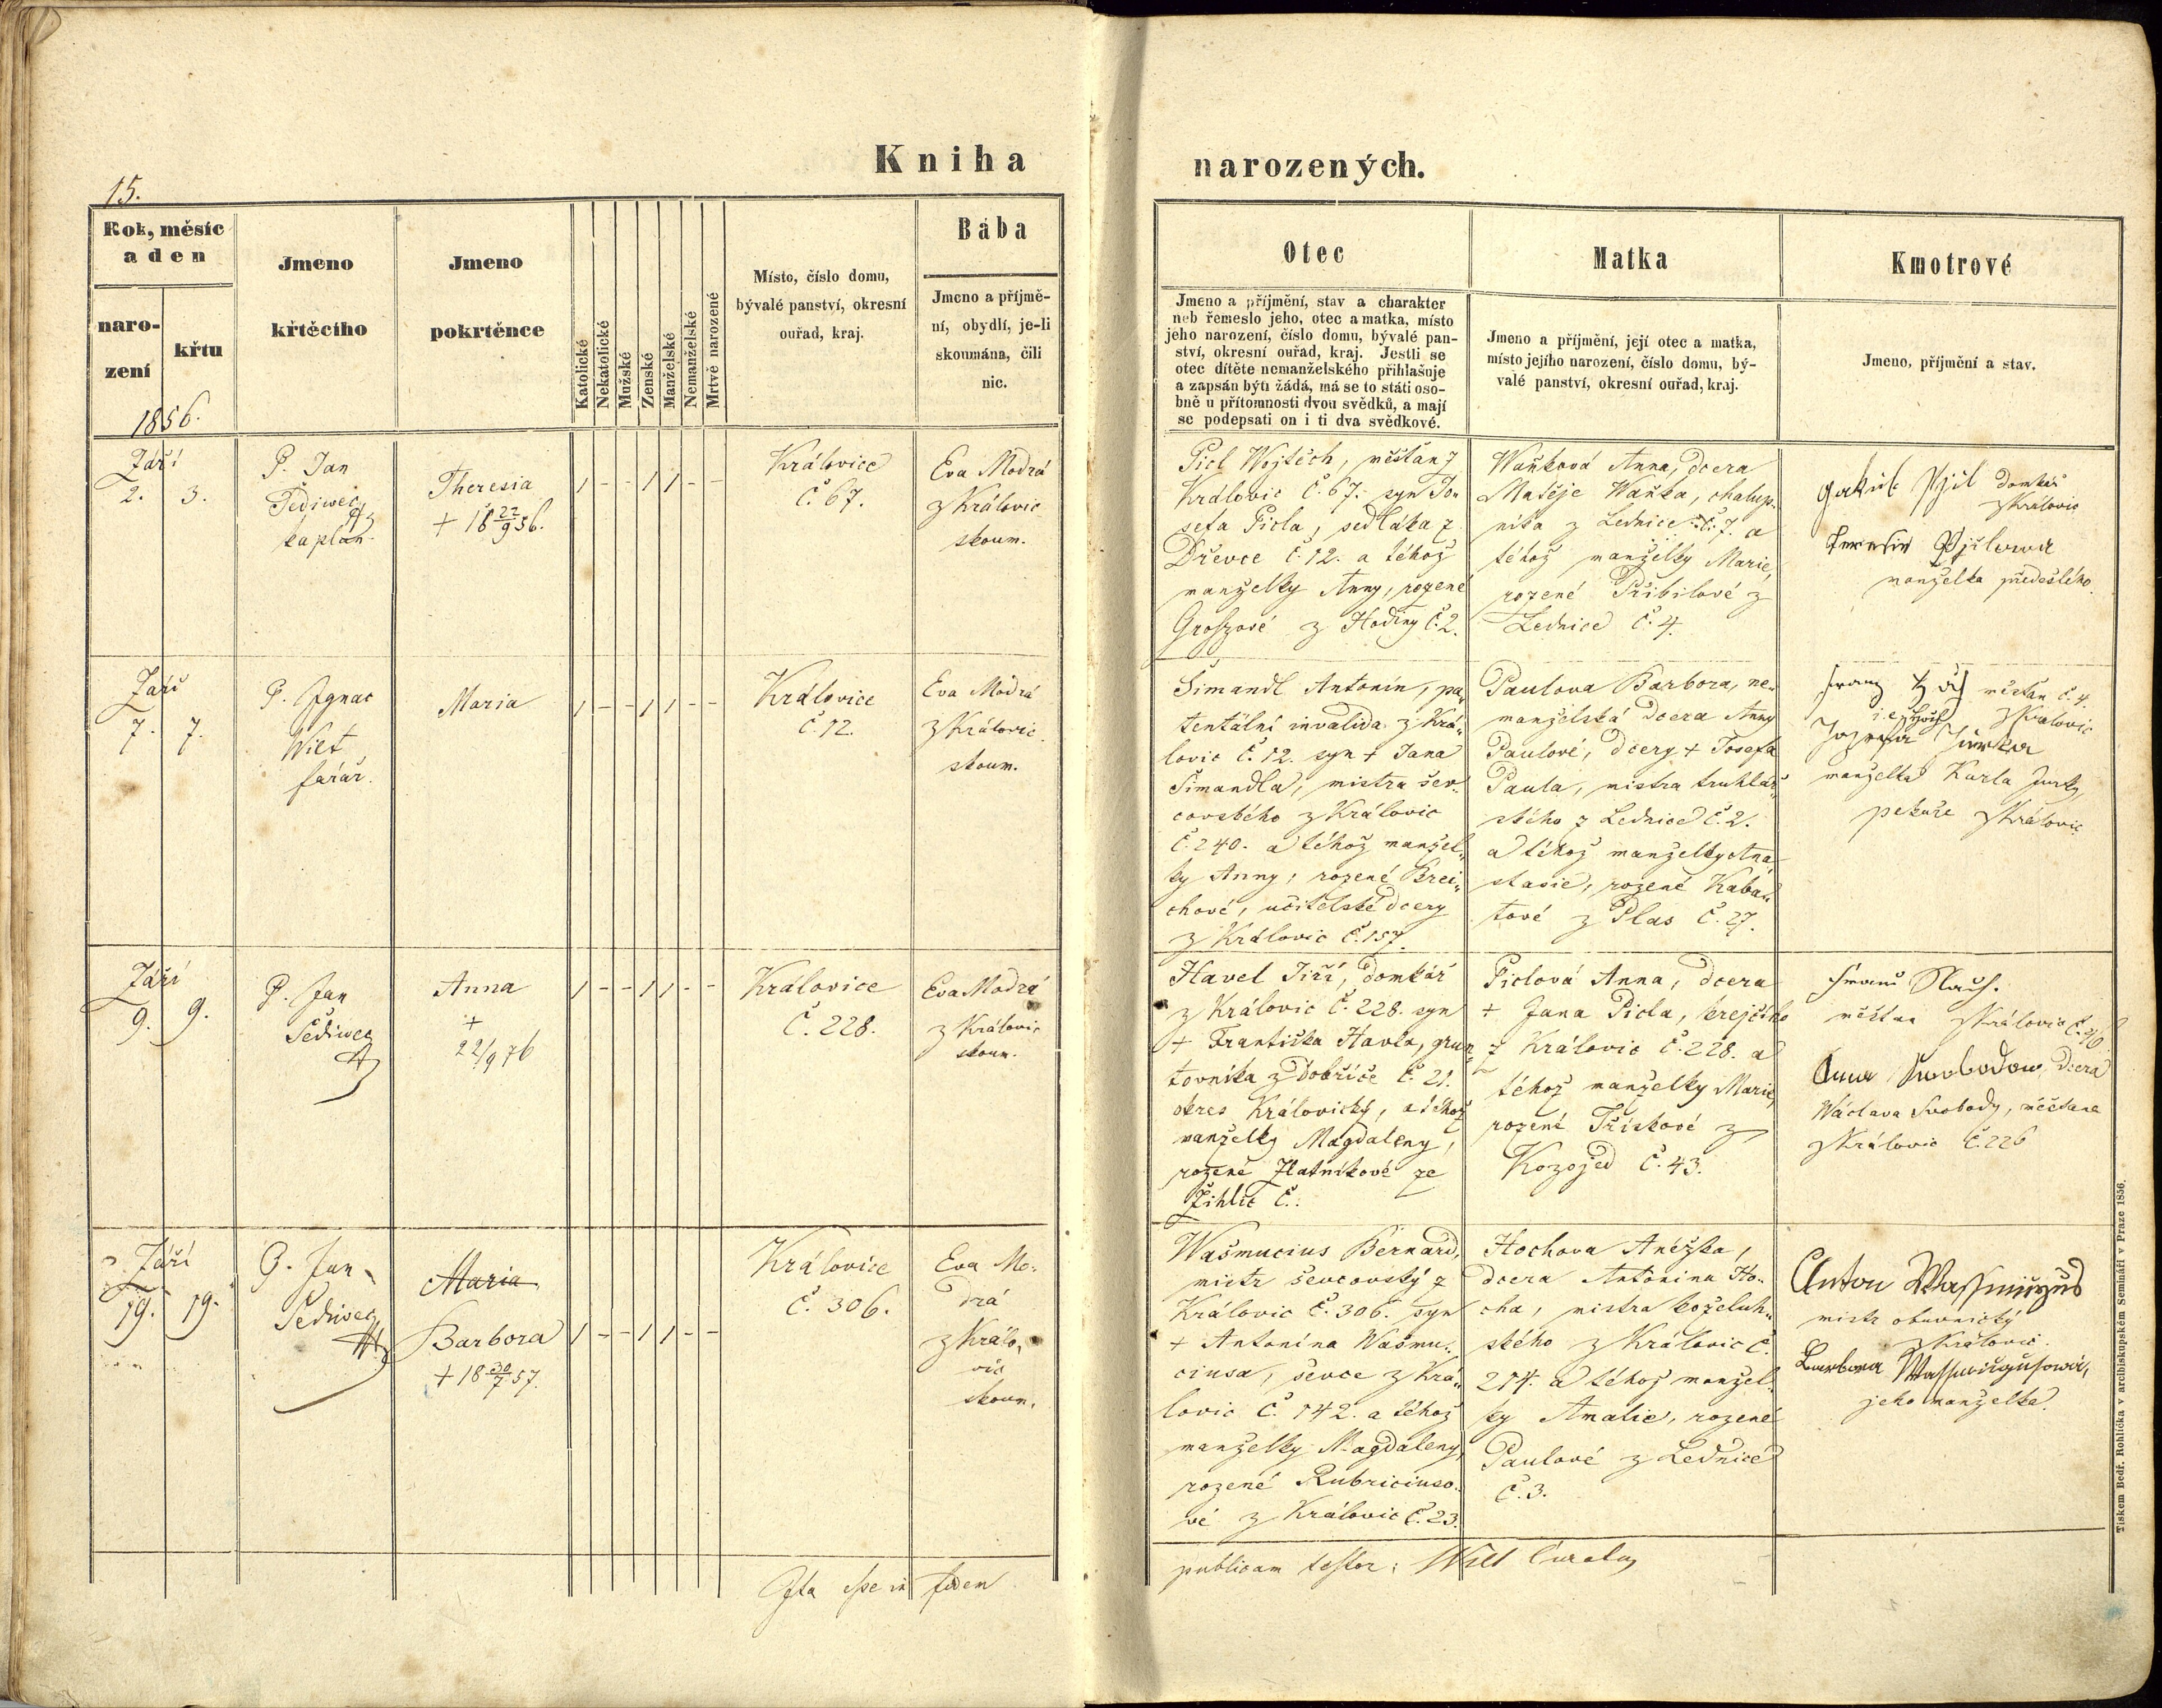 Kniha
narozených.
15.
Rok, měsíc
a den
naro-
zení
křtu
1856.
Jmeno
křtěcího
Jmeno
pokrtěnce
Katolické
Nekatolické
Mužské
Ženské
Manželské
Nemanželské
Mrtvě narozené
Místo, číslo domu,
bývalé panství, okresní
ouřad, kraj.
Bába
Jmeno a příjmě-
ní, obydlí, je-li
skoumána, čili
nic.
Otec
Jmeno a příjmění, stav a charakter
neb řemeslo jeho, otec a matka, místo
jeho narození, číslo domu, bývalé pan-
ství, okresní ouřad, kraj. Jestli se
otec dítěte nemanželského přihlašuje
a zapsán býti žádá, má se to státi oso-
bně u přítomnosti dvou svědků, a mají
se podepsati on i ti dva svědkové.
Matka
Jmeno a příjmění, její otec a matka,
místo jejího narození, číslo domu, bý-
valé panství, okresní ouřad, kraj.
Kmotrové
Jmeno, příjmění a stav.
Září
2. 3.
P. Jan
Šediwec
kaplan.
Theresia
+ 18 22/9 56.
1 - - 1 1 - -
Královice
č. 67.
Eva Modrá
z Královic
skoum.
Picl Wojtěch, měšťan z
Královic č. 67. syn Jo„
sefa Picla, sedláka z
Dřevce č. 12. a téhož
manželky Anny, rozené
Groszové z Hodiny č. 2.
Waňková Anna, dcera
Matěje Waňka, chalup„
níka z Lednice č. 7. a
téhož manželky Marie,
rozené Přibilové z
Lednice č. 4.
domkář
z Královic
manželka předešlého.
Září
7. 7.
P. Ignac
Wilt
farář.
Maria
1 - - 1 1 - -
Královice
č. 12.
Eva Modrá
z Královic
skoum.
Šimandl Antonín, pa„
tentální invalida z Krá„
lovic č. 12. syn + Jana
Šimandla, mistra šev„
covského z Královic
č. 240. a téhož manžel„
ky Anny, rozené Brei„
chové, učitelské dcery
z Královic č. 157.
Paulova Barbora, ne„
manželská dcera Anny
Paulové, dcery + Josefa
Paula, mistra truhlář„
ského z Lednice č. 2.
a téhož manželky Ana„
stasie, rozené Kaba„
tové z Plas č. 27.
měšťan č. 4.
z Královic
manželka Karla Jurky,
pekaře z Královic
Září
9. 9.
P. Jan
Šediwec
Anna
+
22/9 76
1 - - 1 1 - -
Královice
č. 228.
Eva Modrá
z Královic
skoum.
Havel Jiří, domkář
z Královic č. 228. syn
+ Františka Havla, grun„
tovníka z Dobříče č. 21.
okres Královický, a téhož
manželky Magdaleny,
rozené Zlatníkové ze
Žihlic č.:
Piclová Anna, dcera
+ Jana Picla, krejčího
z Královic č. 228. a
téhož manželky Marie,
rozené Třískové z
Kozojed č. 43.
měšťan z Královic
Anna Swobodow dcera
Wáclava Svobody, měšťana
z Královic č. 226
Září
19. 19.
P. Jan
Šediwec
Maria
Barbora
+ 18 30/7 57.
1 - - 1 1 - -
Královice
č. 306.
Eva Mo„
drá
z Králo„
vic
skoum.
Wašmucius Bernard,
mistr ševcovský z
Královic č. 306. syn
+ Antonína Wašmu„
ciusa, ševce z Krá„
lovic č. 142. a téhož
manželky Magdaleny,
rozené Rubriciuso„
vé z Královic č. 23.
Hochova Anežka,
dcera Antonina Ho„
cha, mistra koželuh„
ského z Královic č.
214. a téhož manžel„
ky Amalie, rozené
Paulové z Lednice
č. 3.
Anton
mistr obuvnický
z Královic.
Barbora
jeho manželka.
Ita esse in fidem
publicam testor: Wilt Curatus
Tiskem Bedř. Rohlíčka v arcibiskupském Semináři v Praze 1856.